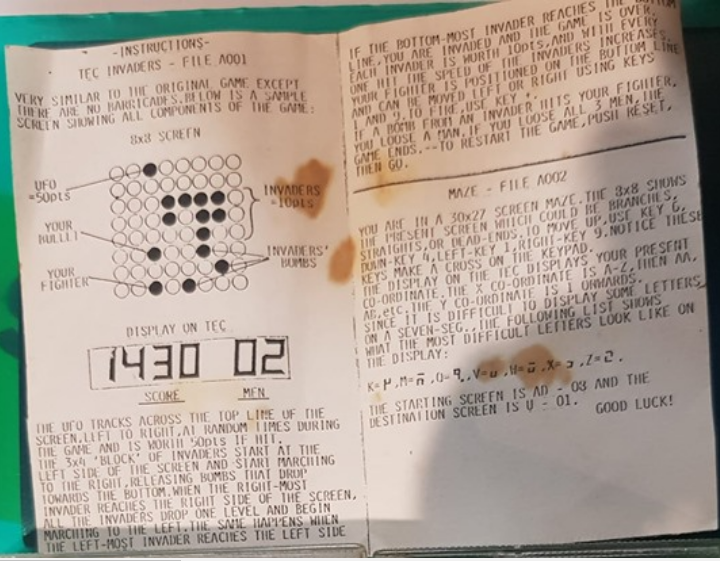 -INSTRUCTIONS-
TEC INVADERS - FILE A001
VERY SIMILAR TO THE ORIGINAL GAME EXCEPT
THERE ARE NO BARRICADES.BELOW IS A SAMPLE
SCREEN SHOWING ALL COMPONENTS OF THE GAME:
8x8 SCREEN
UFO
=50pts
YOUR
BULLET
YOUR
FIGHTER
INVADERS
=10pts
INVADERS'
BOMBS
DISPLAY ON TEC
1430 02
SCORE MEN
THE UFO TRACKS ACROSS THE TOP LINE OF THE
SCREEN,LEFT TO RIGHT,AT RANDOM TIMES DURING
THE GAME AND IS WORTH 50pts IF HIT.
THE 3x4 'BLOCK' OF INVADERS START AT THE
LEFT SIDE OF THE SCREEN AND START MARCHING
TO THE RIGHT,RELEASING BOMBS THAT DROP
TOWARDS THE BOTTOM.WHEN THE RIGHT-MOST
INVADER REACHES THE RIGHT SIDE OF THE SCREEN,
ALL THE INVADERS DROP ONE LEVEL AND BEGIN
MARCHING TO THE LEFT.THE SAME HAPPENS WHEN
THE LEFT-MOST INVADER REACHES THE LEFT SIDE
IF THE BOTTOM-MOST INVADER REACHES THE BOTTOM
LINE,YOU ARE INVADED AND THE GAME IS OVER.
EACH INVADER IS WORTH 10pts,AND WITH EVERY
ONE HIT THE SPEED OF THE INVADERS INCREASES.
YOUR FIGHTER IS POSITIONED ON THE BOTTOM LINE
AND CAN BE MOVED LEFT OR RIGHT USING KEYS
1 AND 9.TO FIRE,USE KEY '+'.
IF A BOMB FROM AN INVADER HITS YOUR FIGHTER,
YOU LOOSE A MAN.IF YOU LOOSE ALL 3 MEN,THE
GAME ENDS.--TO RESTART THE GAME,PUSH RESET,
THEN GO.
MAZE - FILE A002
YOU ARE IN A 30x27 SCREEN MAZE.THE 8x8 SHOWS
THE PRESENT SCREEN WHICH COULD BE BRANCHES,
STRAIGHTS,OR DEAD-ENDS.TO MOVE UP,USE KEY 6,
DOWN-KEY 4,LEFT-KEY 1,RIGHT-KEY 9.NOTICE THESE
KEYS MAKE A CROSS ON THE KEYPAD.
THE DISPLAY ON THE TEC DISPLAYS YOUR PRESENT
CO-ORDINATE.THE X CO-ORDINATE IS A-Z,THEN AA,
AB,etc.THE Y CO-ORDINATE IS 1 ONWARDS.
SINCE IT IS DIFFICULT TO DISPLAY SOME LETTERS
ON A SEVEN-SEG.,THE FOLLOWING LIST SHOWS
WHAT THE MOST DIFFICULT LETTERS LOOK LIKE ON
THE DISPLAY:
THE STARTING SCREEN IS AD - 03 AND THE
DESTINATION SCREEN IS U - 01. GOOD LUCK!